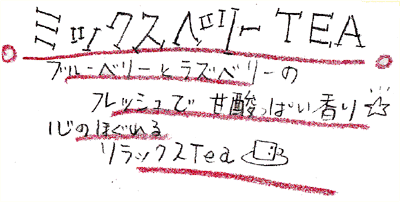 ミックスベリーTEA
ブルーベリーとラズベリーの
フレッシュで甘酸っぱい香り☆
心のほぐれる
リラックスTea